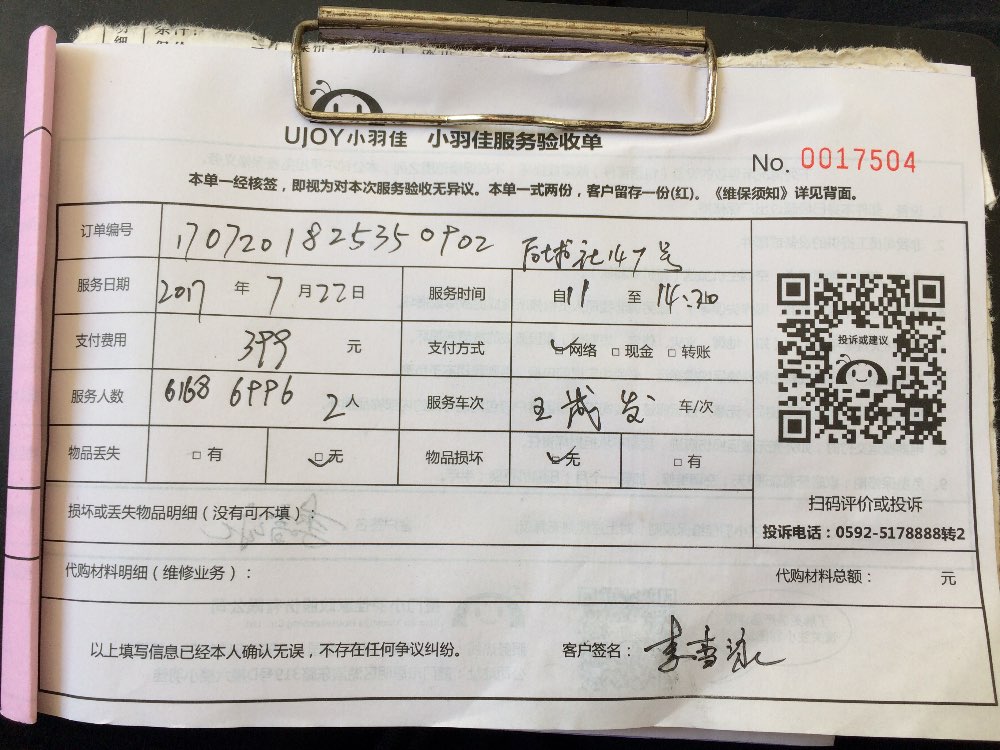 UJOY小羽佳 小羽佳服务验收单
No. 0017504
本单一经核签，即视为对本次服务验收无异议。本单一式两份，客户留存一份(红)。《维保须知》详见背面。
订单编号 1707201825350902 147号
服务日期 2017 年 7 月 22 日 服务时间 自 11 至 14:
支付费用 399 元 支付方式 网络 □ 现金 □ 转账
服务人数 6168 6996 2人 服务车次 王 发 车/次
物品丢失 □ 有 无 物品损坏 无 □ 有
损坏或丢失物品明细（没有可不填）：
代购材料明细（维修业务）： 代购材料总额： 元
以上填写信息已经本人确认无误，不存在任何争议纠纷。 客户签名： 李
投诉或建议
扫码评价或投诉
投诉电话：0592-5178888转2